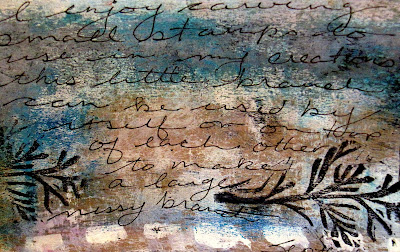 I enjoy carving
small stamps to
use in my creations
this little branch
can be used by
itself or on top
of each other
to make
a large
messy branch